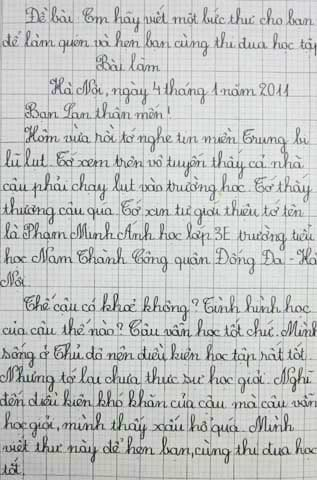 Đề bài: Em hãy viết một bức thư cho bạn
để làm quen và hẹn bạn cùng thi đua học tập
Bài làm
Hà Nội, ngày 4 tháng 1 năm 2011
Bạn Lan thân mến!
Hôm vừa rồi tớ nghe tin miền Trung bị
lũ lụt. Tớ xem trên vô tuyến thấy cả nhà
cậu phải chạy lụt vào trường học. Tớ thấy
thương cậu quá. Tớ xin tự giới thiệu tớ tên
là Phạm Minh Ánh học lớp 3E trường tiểu
học Nam Thành Công quận Đống Đa - Hà
Nội.
Thế cậu có khoẻ không? Tình hình học
của cậu thế nào? Cậu vẫn học tốt chứ. Mình
sống ở Thủ đô nên điều kiện học tập rất tốt.
Nhưng tớ lại chưa thực sự học giỏi. Nghĩ
đến điều kiện khó khăn của cậu mà cậu vẫn
học giỏi, mình thấy xấu hổ quá. Mình
viết thư này để hẹn bạn, cùng thi đua học
tốt.